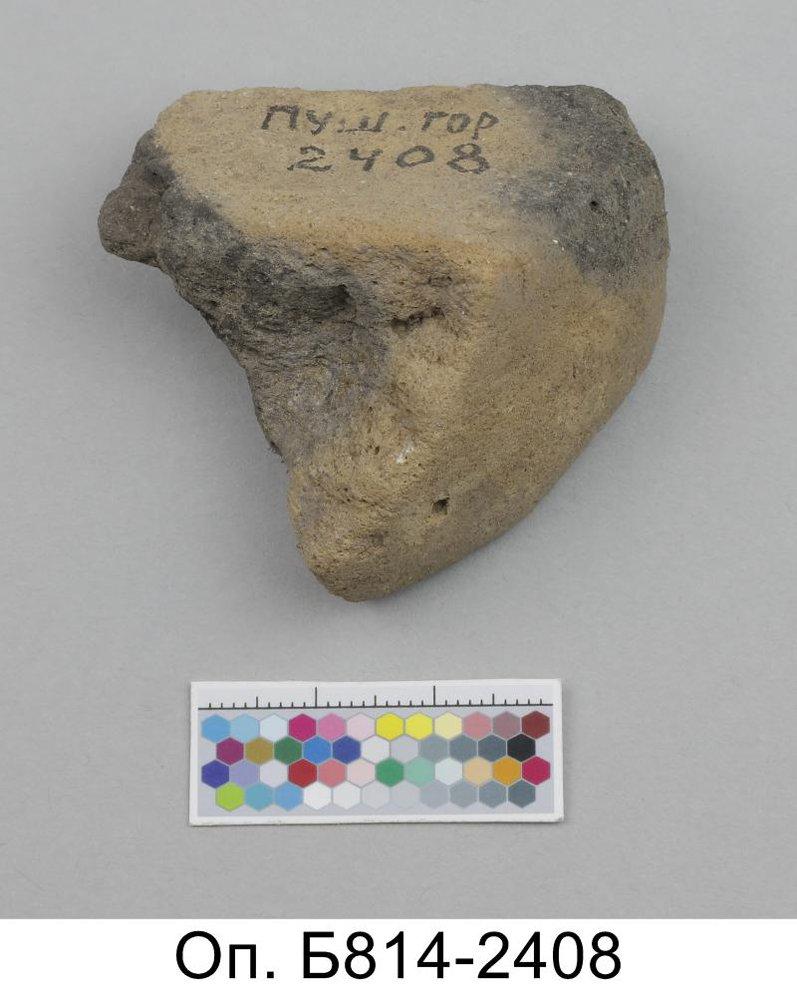 ПУШ. ГОР
2408
Оп. Б814-2408